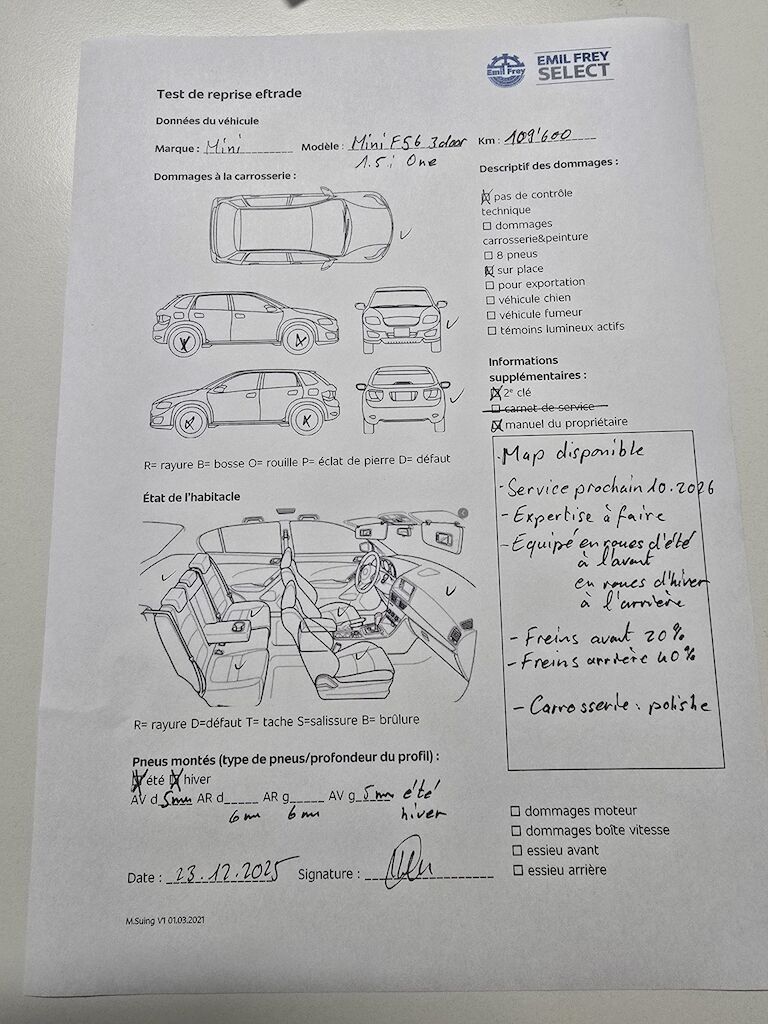 Emil Frey
EMIL FREY
SELECT
Test de reprise eftrade
Données du véhicule
Marque : Mini Modèle : Mini F56 3door Km : 109'600
1.5i One
Dommages à la carrosserie :
Descriptif des dommages :
pas de contrôle
technique
dommages
carrosserie&peinture
8 pneus
sur place
pour exportation
véhicule chien
véhicule fumeur
témoins lumineux actifs
Informations
supplémentaires :
2e clé
carnet de service
manuel du propriétaire
R= rayure B= bosse O= rouille P= éclat de pierre D= défaut
État de l'habitacle
- Map disponible
- Service prochain 10.2026
- Expertise à faire
- Equipé en roues d'été
à l'avant
en roues d'hiver
à l'arrière
- Freins avant 20%
- Freins arrière 40%
- Carrosserie : polishe
R= rayure D=défaut T= tache S=salissure B= brûlure
Pneus montés (type de pneus/profondeur du profil) :
été hiver
AV d 5mm AR d AR g AV g 5mm été
6mm 6mm hiver
dommages moteur
dommages boîte vitesse
essieu avant
essieu arrière
Date : 23.12.2025 Signature :
M.Suing V1 01.03.2021